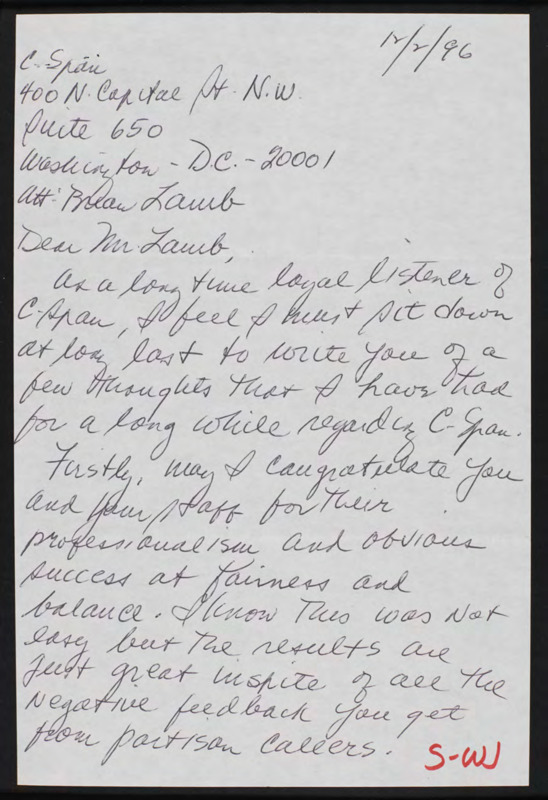 12/2/96
C-Span
400 N. Capital St. N.W.
Suite 650
Washington - D.C. - 20001
Att: Brian Lamb
Dear Mr. Lamb,
As a long time loyal listener of
C-Span, I feel I must sit down
at long last to write you of a
few thoughts that I have had
for a long while regarding C-Span.
Firstly, may I congratulate you
and your staff for their
professionalism and obvious
success at fairness and
balance. I know this was not
easy but the results are
just great inspite of all the
negative feedback you get
from partison callers.
S-W